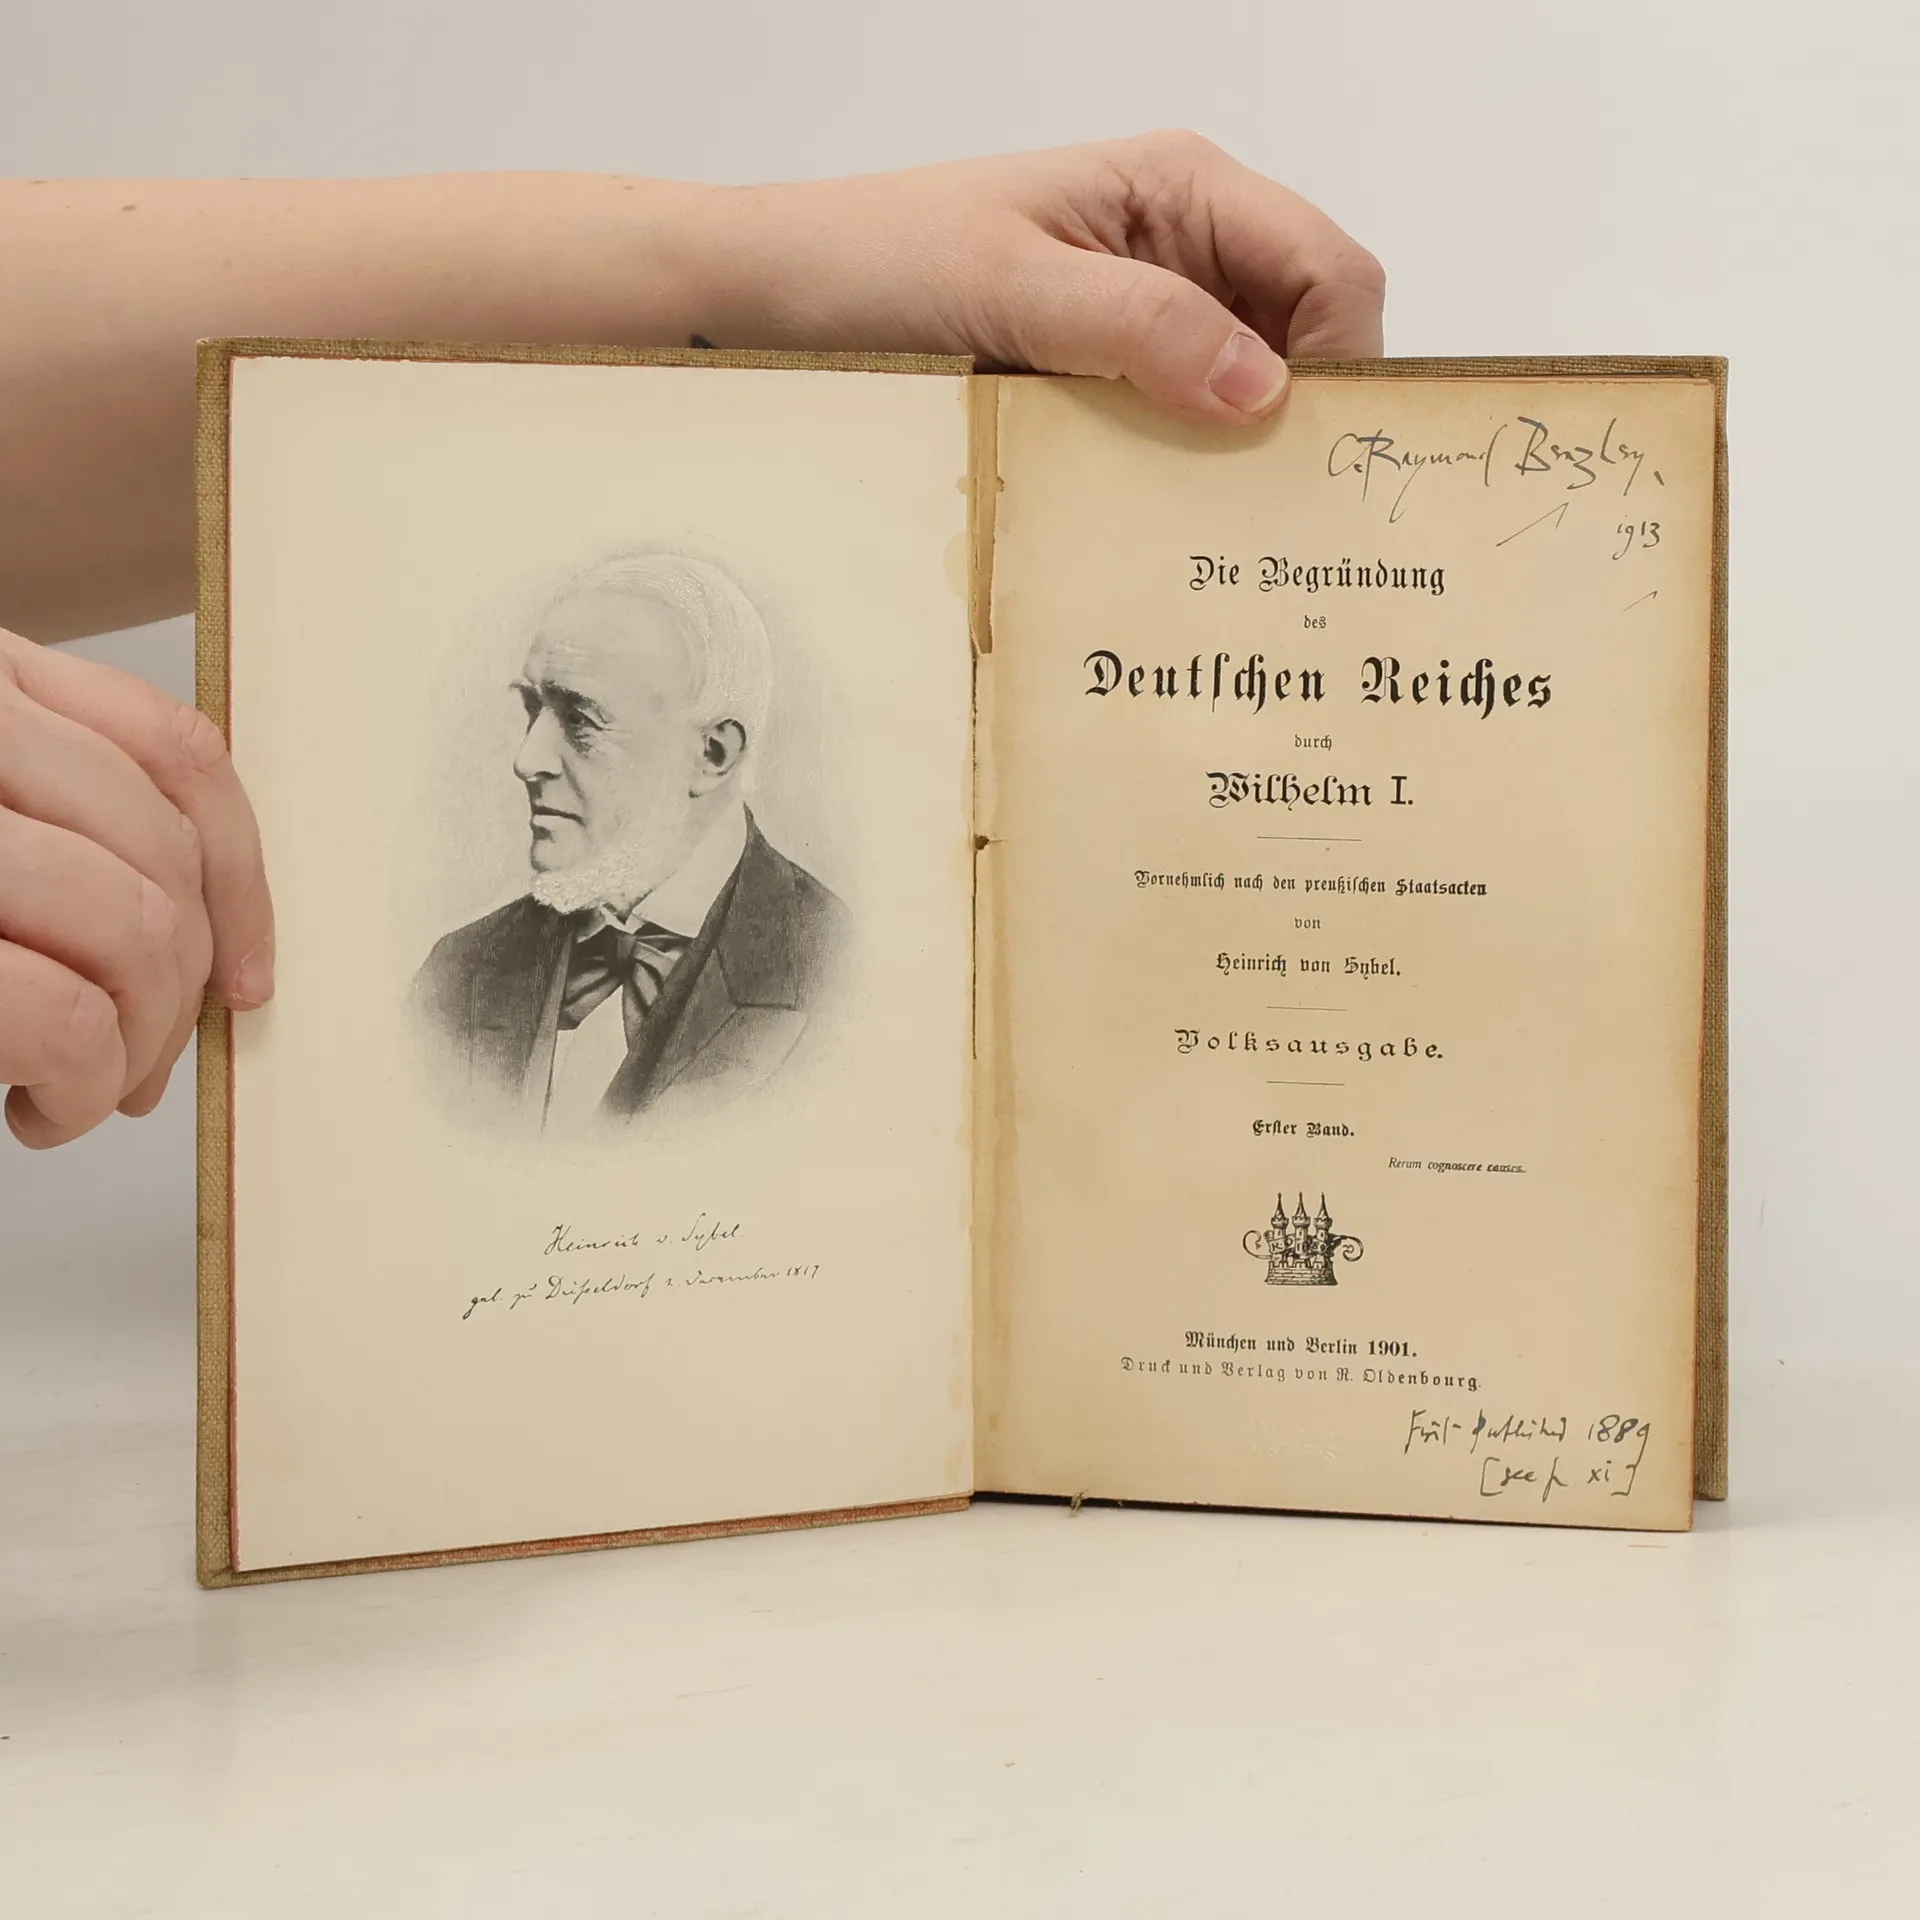 Heinrich v. Sybel.
geb. zu Düsseldorf 2. December 1817
C. Raymond Beazley,
1913
Die Begründung
des
Deutſchen Reiches
durch
Wilhelm I.
Vornehmlich nach den preußiſchen Staatsacten
von
Heinrich von Sybel.
Volksausgabe.
Erſter Band.
Rerum cognoscere causes.
München und Berlin 1901.
Druck und Verlag von R. Oldenbourg.
First published 1889
[see p. xi]